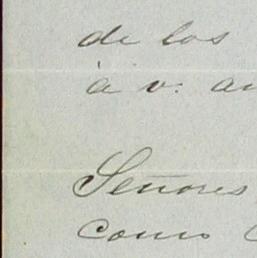 de los
à v. au
Señores
como